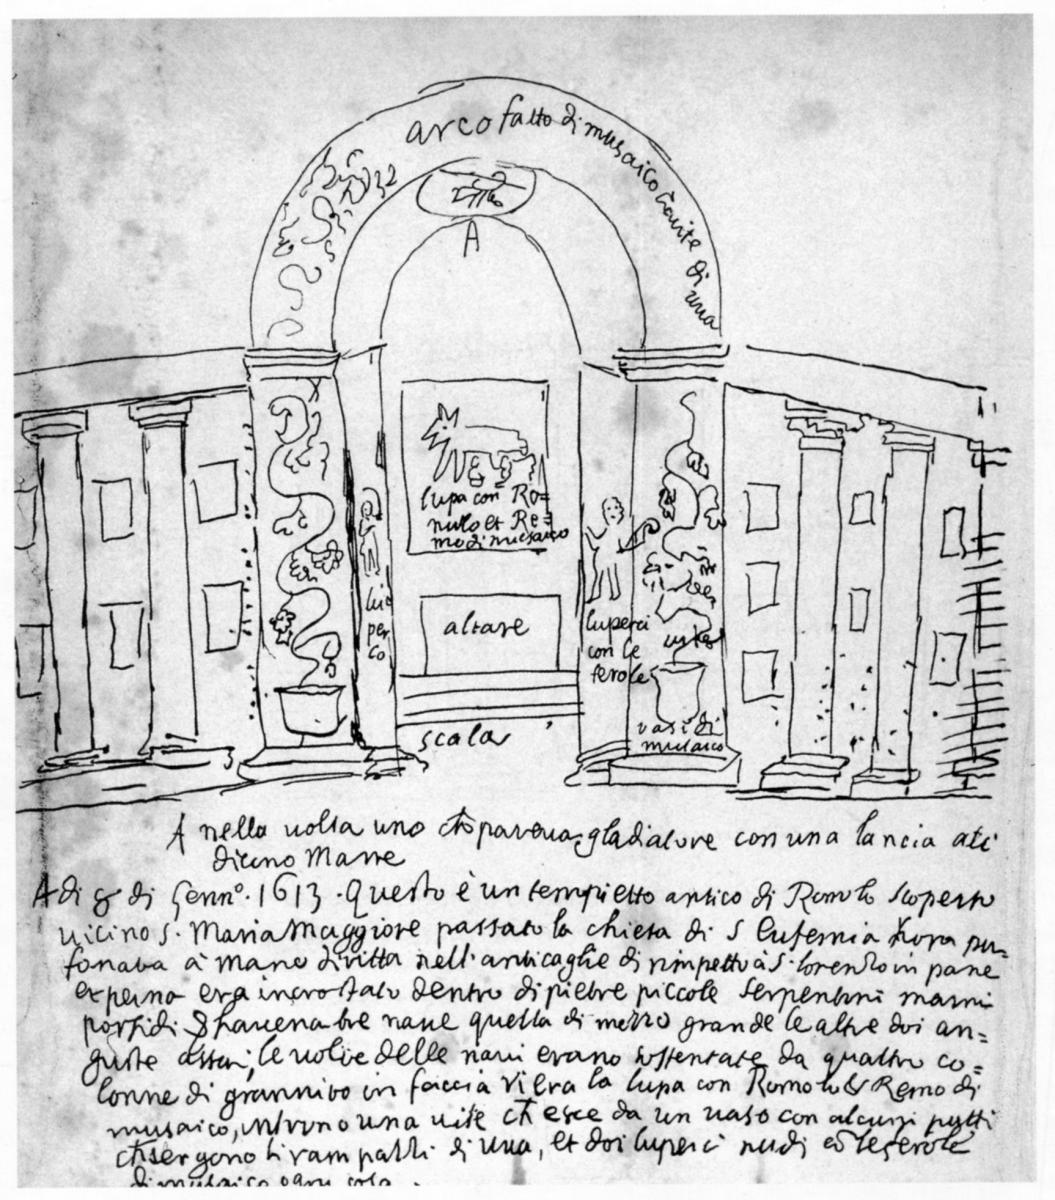 arco fatto di musaico co uite di uua
A
lupa con Ro=
mulo et Re=
mo di musaico
lu
per
co
altare
luperci
con le
ferole
uite
scala
vasi di
musaico
A nella uolta uno ch pareua gladiatore con una lancia
dicono Marte
A di 8 di Genn°. 1613. Questo è un tempietto antico di Romolo scoperto
uicino S. Maria Maggiore passato la chiesa di S Eufemia
à mano diritta nell'anticaglie di rimpetto à S. Lorenzo in pane
et perna era incrostato dentro di pietre piccole serpentini marmi
porfidi & haueua tre naue quella di mezzo grande le altre doi an=
guste assai, le uolte delle naui erano sostentate da quattro co=
lonne di grannito in faccia vi era la lupa con Romolo & Remo di
musaico, intorno una uite ch esce da un uaso con alcuni putti
ch sergono li rampatli di uua, et doi luperci nudi co le ferole
di musaico ogni cosa.